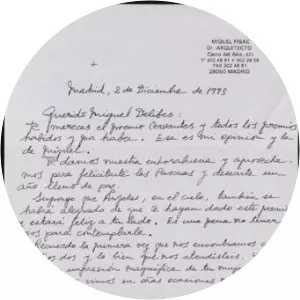 MIGUEL FISAC
Dr. ARQUITECTO
Cerro del Aire, s/n
FAX 302 46 81
28050 MADRID
Madrid, 2 de Diciembre de 1993
Querido Miguel Delibes:
Te mereces el premio Cervantes y todos los premios
habidos y por haber. Esa es mi opinión y la
de
Te damos nuestra enhorabuena y aprovecha-
mos para felicitarte las Pascuas y desearte un
año lleno de paz.
Supongo que Angeles, en el cielo, también se
habrá alegrado de que te hayan dado este premio
y estará feliz a tu lado. Es una pena no tener
para contemplarla.
Recuerdo la primera vez que nos encontramos
dos y lo bien que nos atendisteis,
impresión magnífica de tu
vimos en otras ocasiones